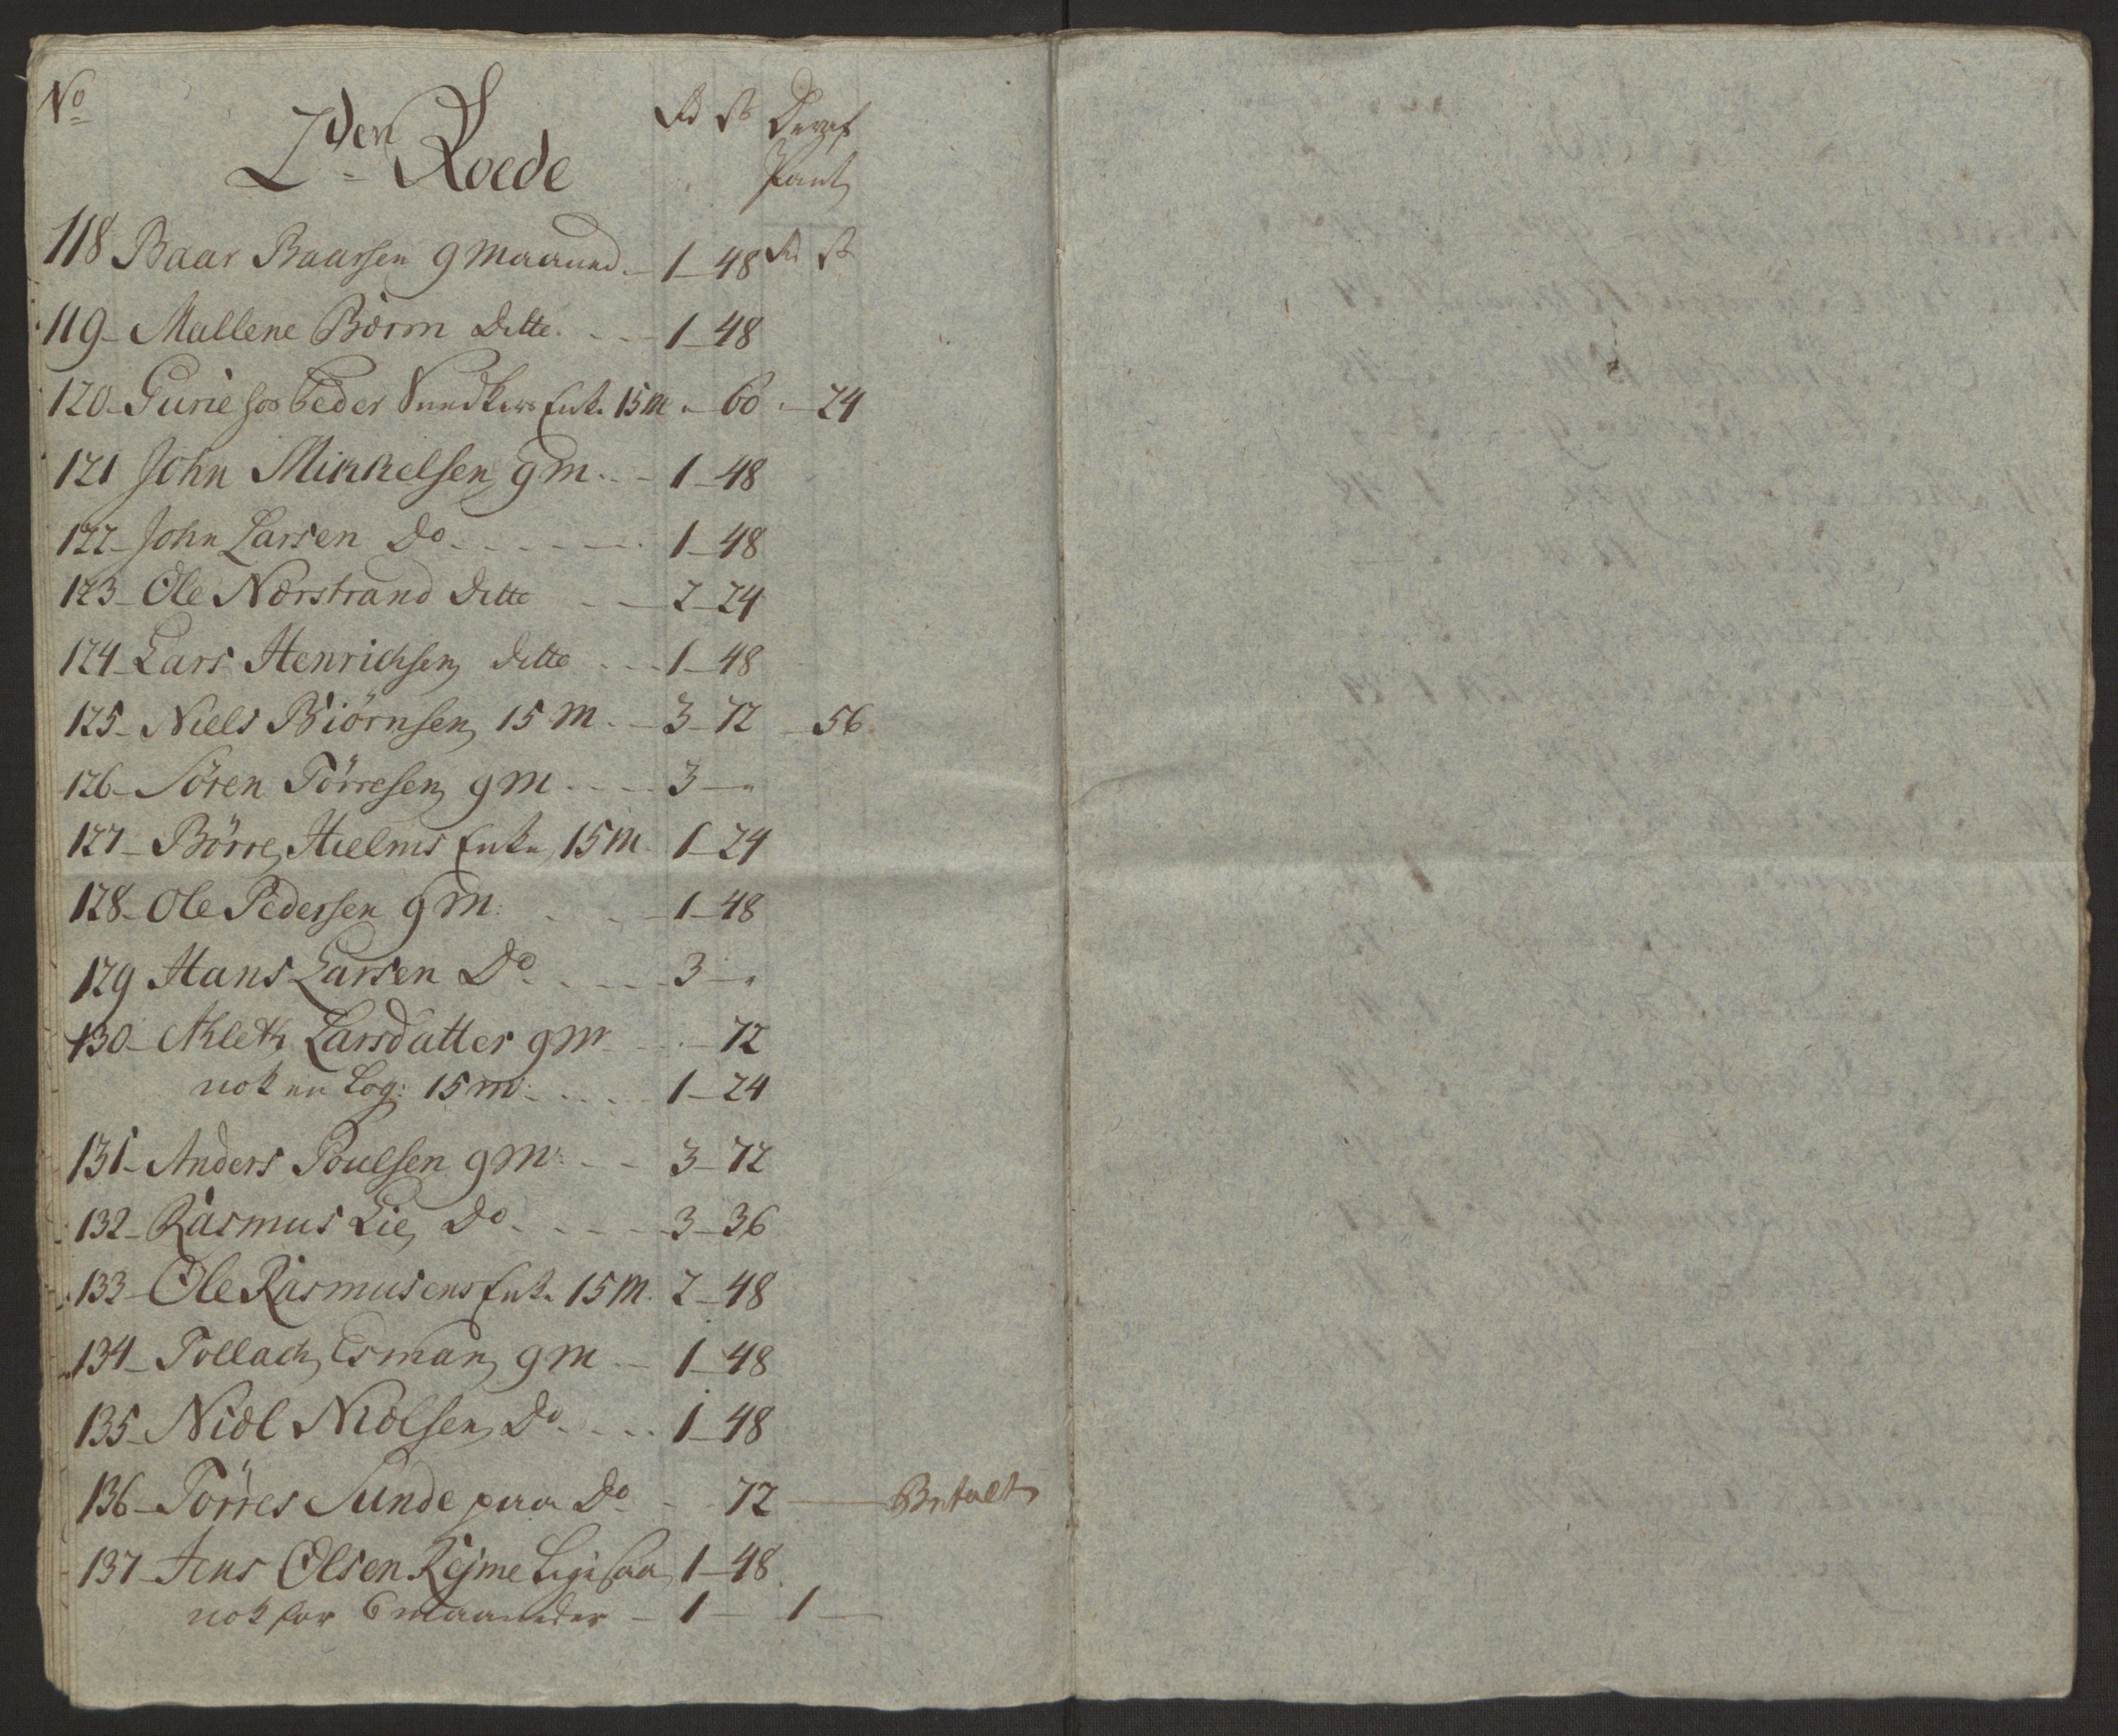 No
2den Roede
Rd s Deraf
Pant
118 Baar Baarsen 9 Maaned. 1_48 Rd s
119_ Mallene Börm ditte. 1_48
120_ Gurie hos Peder Enk. 15 M. _ 60 _ 24
121 John Mikkelsen 9 M. 1_48
122_ John Larsen Do 1_48
123_ Ole Nærstrand ditto 2_24
124_ Lars Henrichsen ditto 1_48
125_ Niels Biörnsen 15 M. 3_72 _56
126_ Sören Törresen 9 M 3_"
127_ Börre Hielms Enke 15 M. 1_24
128_ Ole Pedersen 9 M: 1_48
129 Hans Larsen Do 3_"
130_ Ahleth Larsdatter 9 M _72
nok en Log: 15 M: 1_24
131_ Anders Poulsen 9 M: 3_72
132_ Rasmus Lie Do 3_36
133_ Ole Rasmusens Enk. 15 M. 2_48
134_ Tollach Esman 9 M 1_48
135_ Niöl Niölsen Do 1_48
136_ Törres Sunde paa Do 72 — Betalt
137_ Jens Olsen Rejme Ligesaa 1_48
nok for 6 maaneder _ 1 — 1 —